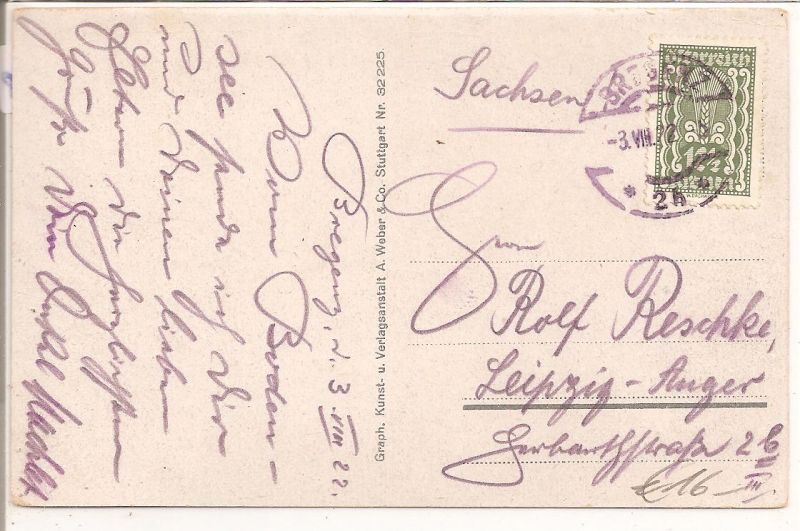 Bregenz, d. 3. VIII 22.
Vom Boden-
see sende ich Dir
und Deinen lieben
Eltern die herzlichsten
Grüße Dein Onkel
Graph. Kunst- u. Verlagsanstalt A. Weber & Co. Stuttgart Nr. 32225.
Sachsen
BREGENZ
-3.VIII.22
* 2b *
12½
Rolf Reschke,
Leipzig-Anger
straße 26
III
16